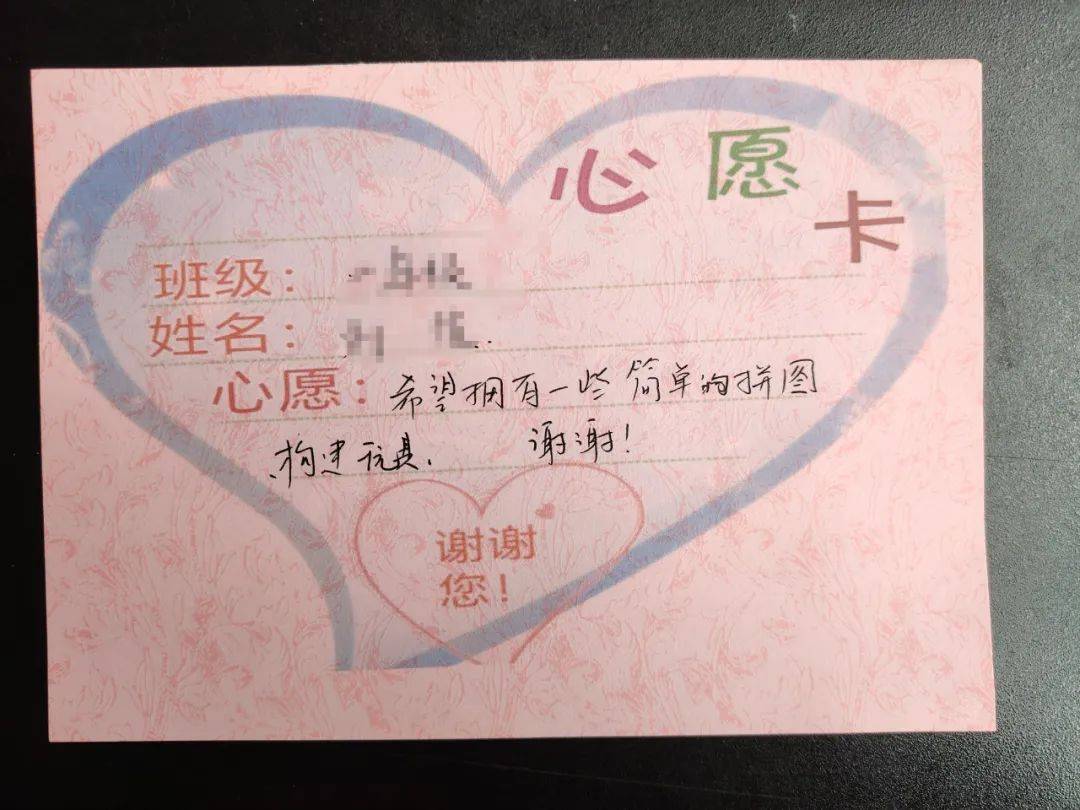 心愿卡
班级：
姓名：
心愿：希望拥有一些简单的拼图
构建玩具. 谢谢!
谢谢
您!